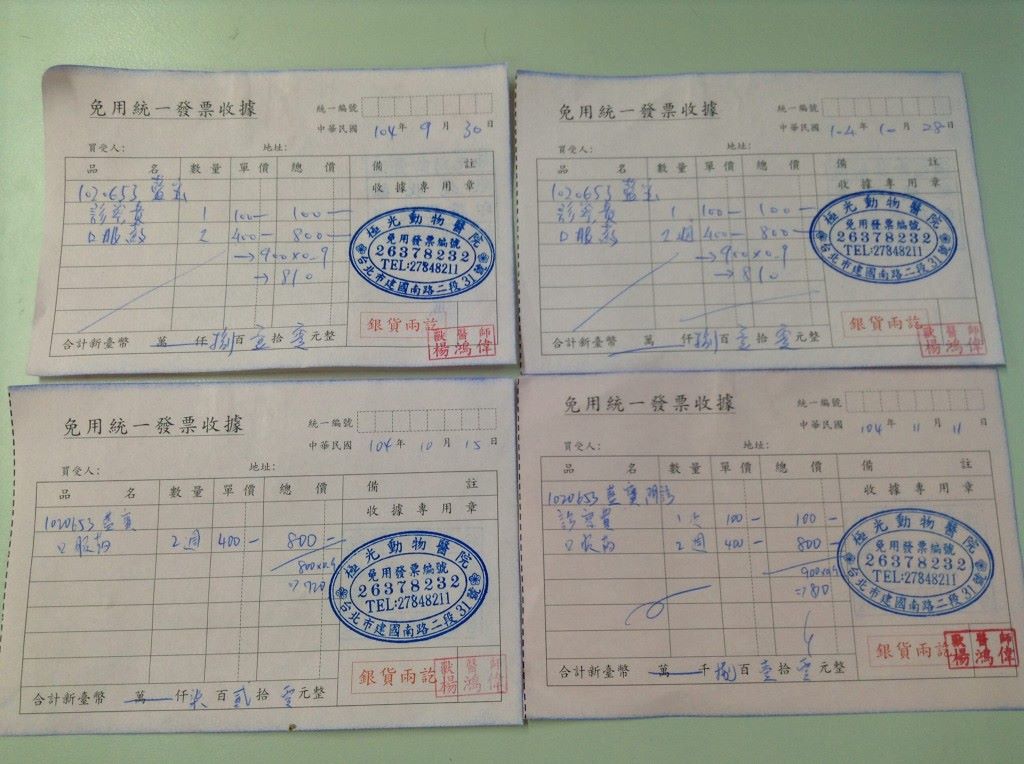 免用統一發票收據
統一編號
中華民國 104年 9月 30日
買受人: 地址:
品 名 數量 單價 總 價 備 註
收據專用章
1020653 藍寶
診察費 1 100- 100-
口服葯 2 400- 800-
→900x0.9
→810
極光動物醫院
免用發票編號
26378232
TEL:27848211
台北市建國南路二段31號
銀貨兩訖
獸醫師
楊鴻偉
合計新臺幣 萬 仟 捌 百 壹 拾 零 元整
免用統一發票收據
統一編號
中華民國 104年 10月 28日
買受人: 地址:
品 名 數量 單價 總 價 備 註
收據專用章
1020653 藍寶
診察費 1 100- 100-
口服葯 2週 400- 800-
→900x0.9
→810
極光動物醫院
免用發票編號
26378232
TEL:27848211
台北市建國南路二段31號
銀貨兩訖
獸醫師
楊鴻偉
合計新臺幣 萬 仟 捌 百 壹 拾 零 元整
免用統一發票收據
統一編號
中華民國 104年 10月 15日
買受人: 地址:
品 名 數量 單價 總 價 備 註
收據專用章
1020653 藍寶
口服葯 2週 400- 800-
800x0.9
⇒720
極光動物醫院
免用發票編號
26378232
TEL:27848211
台北市建國南路二段31號
銀貨兩訖
獸醫師
楊鴻偉
合計新臺幣 萬 仟 柒 百 貳 拾 零 元整
免用統一發票收據
統一編號
中華民國 104年 11月 11日
買受人: 地址:
品 名 數量 單價 總 價 備 註
收據專用章
1020653 藍寶
診察費 1次 100- 100-
口服葯 2週 400- 800-
900x0.9
極光動物醫院
免用發票編號
26378232
TEL:27848211
台北市建國南路二段31號
銀貨兩訖
獸醫師
楊鴻偉
合計新臺幣 萬 千 捌 百 壹 拾 零 元整